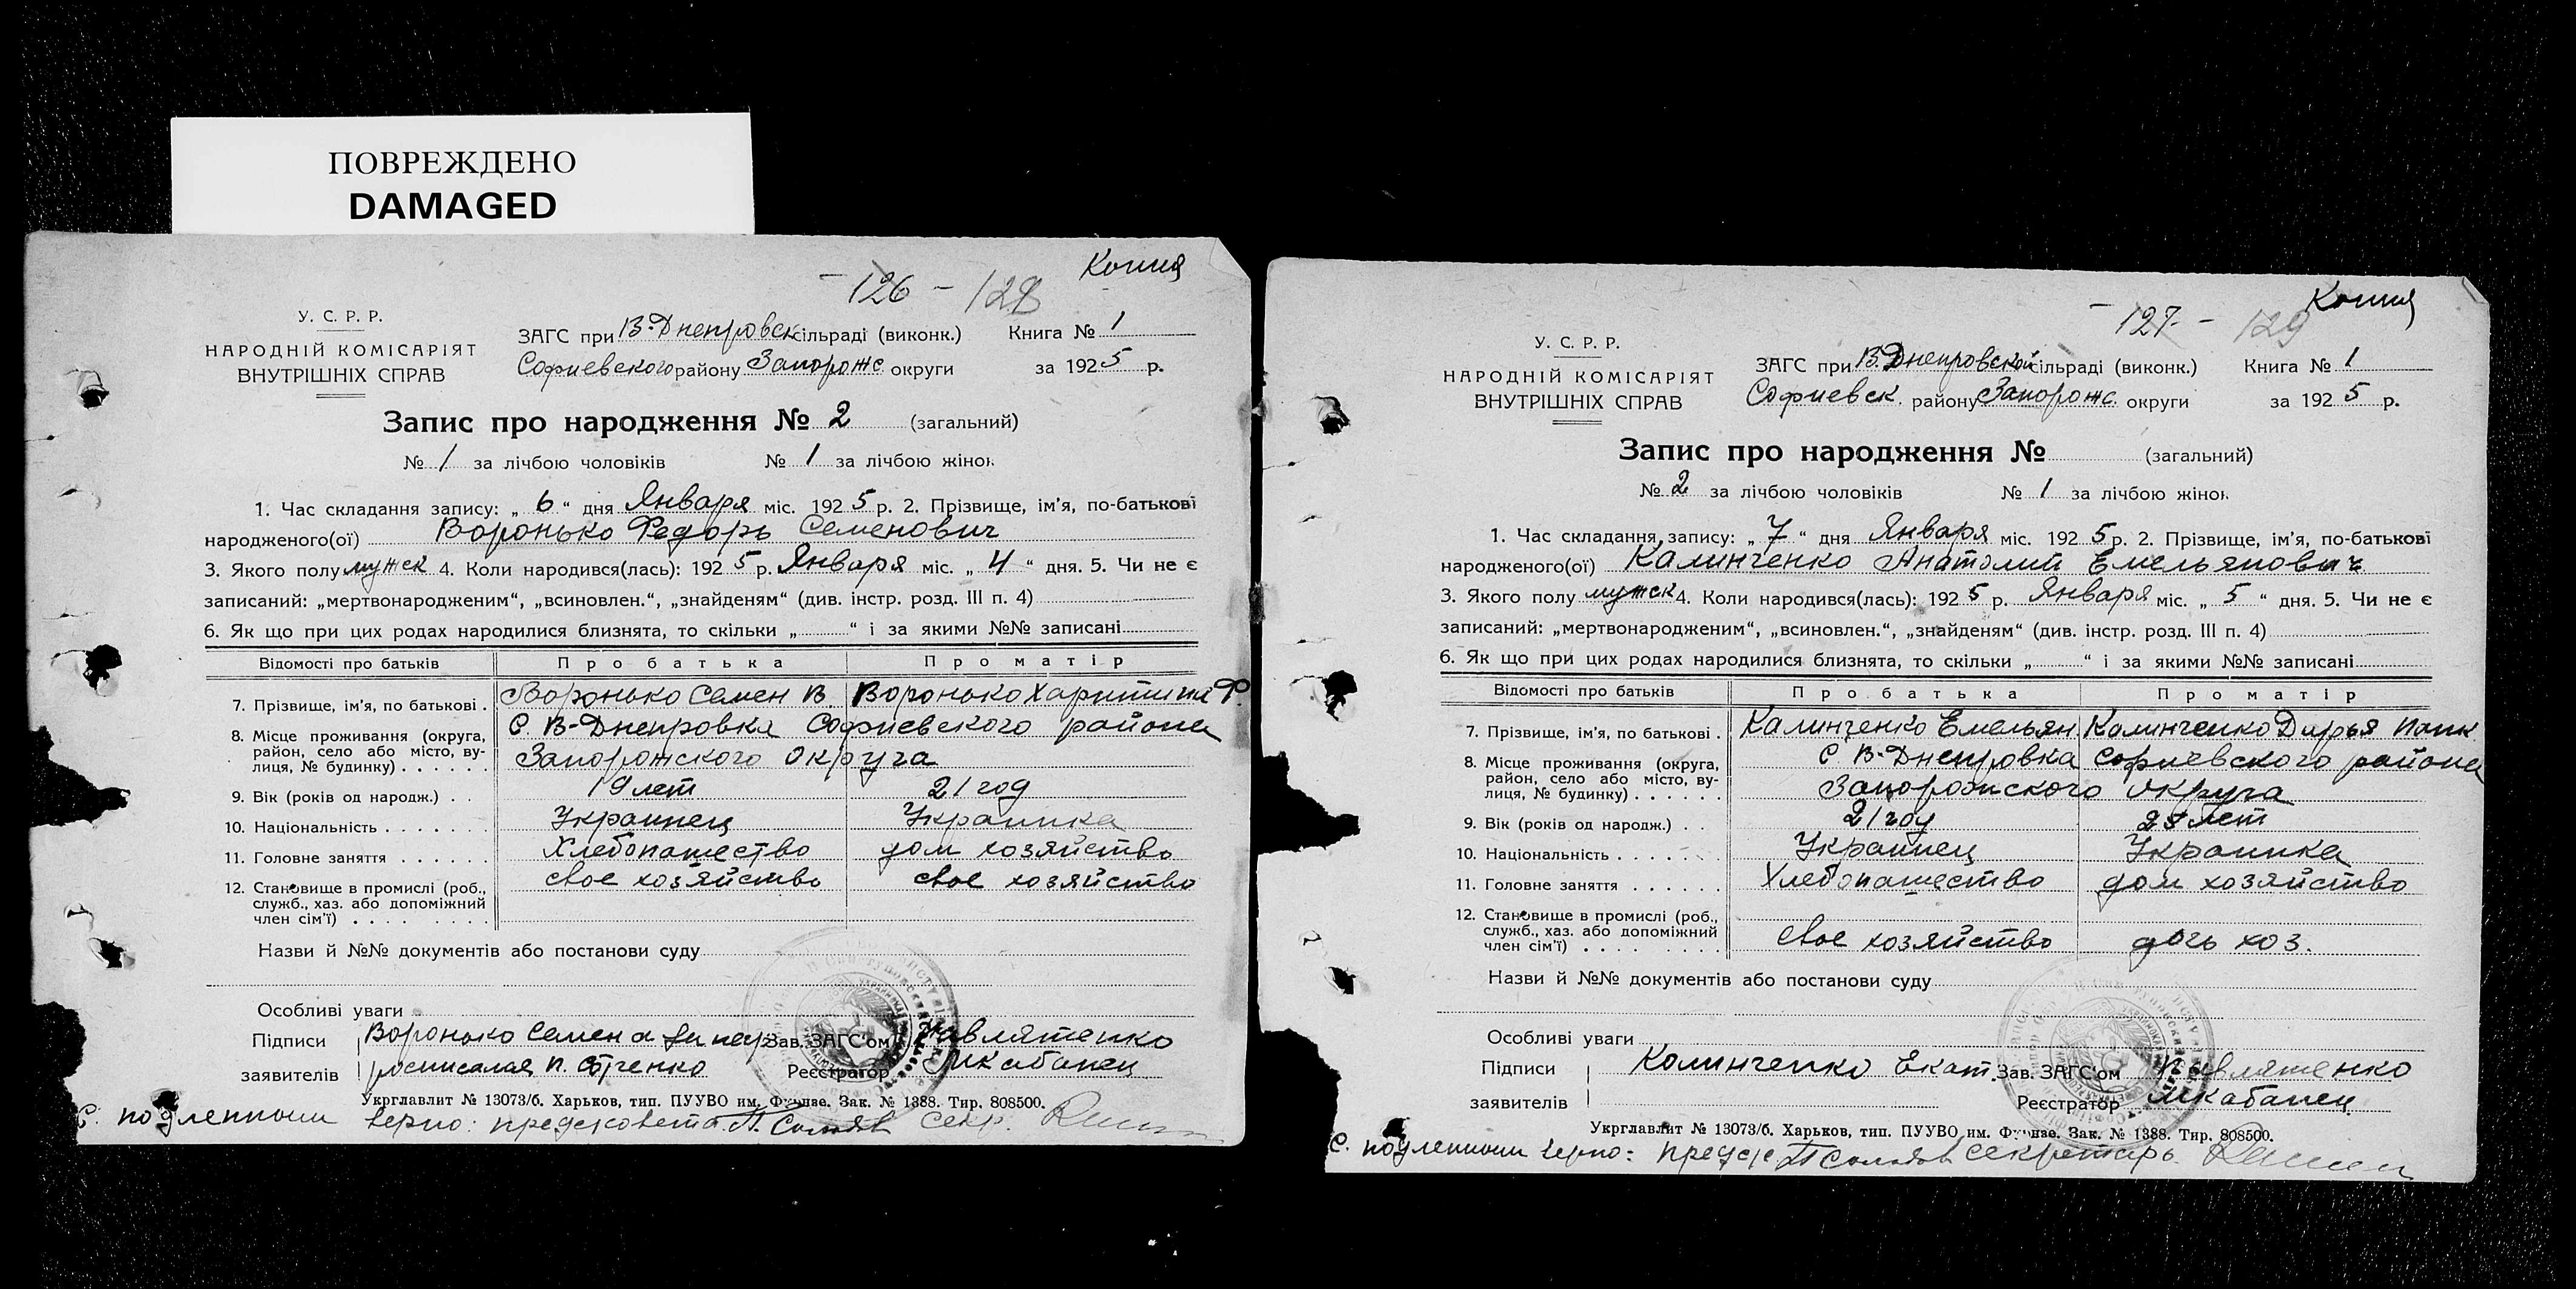 ПОВРЕЖДЕНО
DAMAGED
Копия
126 - 128
У. С. Р. Р.
НАРОДНІЙ КОМІСАРІЯТ
ВНУТРІШНІХ СПРАВ
ЗАГС при В-Днепровск сільраді (виконк.) Книга № 1
Софиевского району Запорожс. округи за 1925 р.
Запис про народження № 2 (загальний)
№ 1 за лічбою чоловіків № 1 за лічбою жінок
1. Час складання запису: „ 6 “ дня Января міс. 1925 р. 2. Прізвище, ім’я, по-батькові
народженого(ої) Воронько Федорь Семенович
3. Якого полу мужск 4. Коли народився(лась): 1925 р. Января міс. „ 4 “ дня. 5. Чи не є
записаний: „мертвонародженим“, „всиновлен.“, „знайденям“ (див. інстр. розд. III п. 4)
6. Як що при цих родах народилися близнята, то скільки „ “ і за якими №№ записані
Відомості про батьків Про батька Про матір
7. Прізвище, ім’я, по батькові . Воронько Семен В. Воронько Харитина Ф.
8. Місце проживання (округа, С. В-Днепровка Софиевского района
район, село або місто, ву-
лиця, № будинку) . . . . . . Запорожского округа
9. Вік (років од народж.) . . 19 лет 21 год
10. Національність . . . . . . . Украинец Украинка
11. Головне заняття . . . . . . Хлебопашество дом хозяйство
12. Становище в промислі (роб., свое хозяйство свое хозяйство
служб., хаз. або допоміжний
член сім’ї) . . . . . . . . .
Назви й №№ документів або постанови суду
Особливі уваги
Підписи Воронько Семен а за нег Зав. ЗАГС’ом Павлятенко
заявителів росписался П. Реєстратор
Укрглавліт № 13073/б. Харьков, тип. ПУУВО им. Фрунзе. Зак. № 1388. Тир. 808500.
С. подленным верно: предсховета П. Секр.
Копия
127 - 129
У. С. Р. Р.
НАРОДНІЙ КОМІСАРІЯТ
ВНУТРІШНІХ СПРАВ
ЗАГС при В. Днепровской сільраді (виконк.) Книга № 1
Софиевск. району Запорожс. округи за 1925 р.
Запис про народження № (загальний)
№ 2 за лічбою чоловіків № 1 за лічбою жінок
1. Час складання запису: „ 7 “ дня Января міс. 1925 р. 2. Прізвище, ім’я, по-батькові
народженого(ої) Калинченко Анатолий Емельянович
3. Якого полу мужск 4. Коли народився(лась): 1925 р. Января міс. „ 5 “ дня. 5. Чи не є
записаний: „мертвонародженим“, „всиновлен.“, „знайденям“ (див. інстр. розд. III п. 4)
6. Як що при цих родах народилися близнята, то скільки „ “ і за якими №№ записані
Відомості про батьків Про батька Про матір
7. Прізвище, ім’я, по батькові . Калинченко Емельян. Калинченко Дарья
8. Місце проживання (округа, С. В-Днепровка Софиевского района
район, село або місто, ву-
лиця, № будинку) . . . . . . Запорожского округа
9. Вік (років од народж.) . . 21 год лет
10. Національність . . . . . . . Украинец Украинка
11. Головне заняття . . . . . . Хлебопашество дом хозяйство
12. Становище в промислі (роб.,
служб., хаз. або допоміжний
член сім’ї) . . . . . . . . . свое хозяйство дочь хоз.
Назви й №№ документів або постанови суду
Особливі уваги
Підписи Калинченко Екат. Зав. ЗАГС’ом Павлятенко
заявителів Реєстратор
Укрглавліт № 13073/б. Харьков, тип. ПУУВО им. Фрунзе. Зак. № 1388. Тир. 808500.
С. подленным верно: секретарь